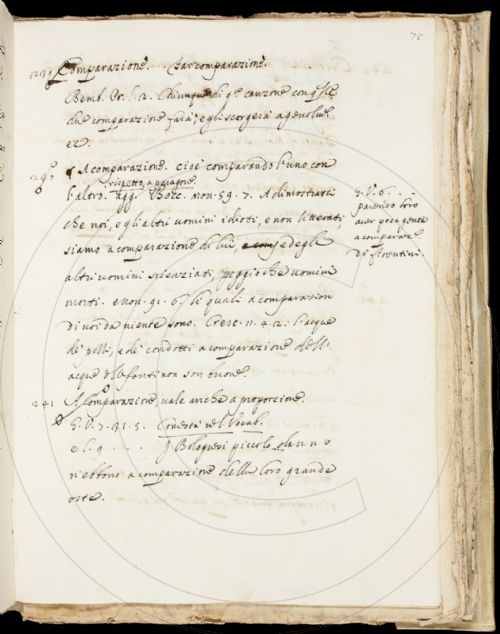 75
239 Comparazione. Far comparazione.
Bemb. Pr. l. 2. Chiunque di q.e canzone con
due comparazione farà, egli scorgerà agevolm.e
etc.
240 A comparazione. cioè comparando l'uno con
l'altro. rispetto, a paragone. Bocc. nov. 59. 7. A dimostrarci
che noi, e gli altri uomini idioti, e non litterati,
siamo a comparazione di lui, e degli
altri uomini scienziati, peggio che uomini
morti. e nov. 91. 6. li quali a comparazion
di voi da niente sono. Cresc. 11. 4. 2. l'acque
de' e de' condotti a comparazione dell'
acque delle fonti non son buone.
G. V. 6. . .
parendo loro
aver poca gente
a comparaz.e
di fiorentini.
241 A comparazione vale anche a proporcione.
G. V. 7. 31. 5. nel Vocab.
e l. 9 . . . . Bolognesi piccolo danno
ricebbono a comparazione della loro grande
oste.